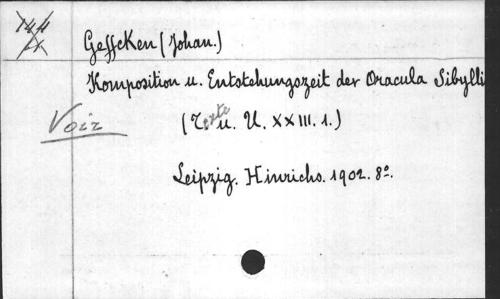 Geffcken (Johan.)
Komposition u. Entstehungszeit der Oracula Sibylli
Voir
(Texte u. U. XXIII. 1.)
Leipzig. Hinrichs. 1902. 8º.